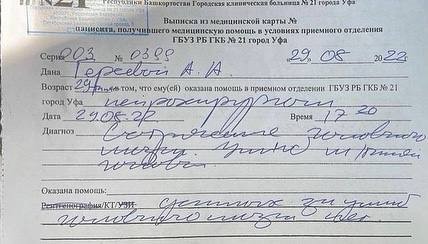 Республики Башкортостан Городская клиническая больница № 21 город Уфа
№21
Выписка из медицинской карты №
пациента, получившего медицинскую помощь в условиях приемного отделения
ГБУЗ РБ ГКБ № 21 город Уфа
Серия 003 № 0399 29 08 2022
Дана А. А.
Возраст в том, что ему(ей) оказана помощь в приемном отделении ГБУЗ РБ ГКБ № 21
город Уфа нейрохирургом
Дата 29.08.22 Время 17 20
Диагноз Сотрясение головного
мозга
головы
Оказана помощь:
Рентгенография/КТ/УЗИ
головного мозга нет.